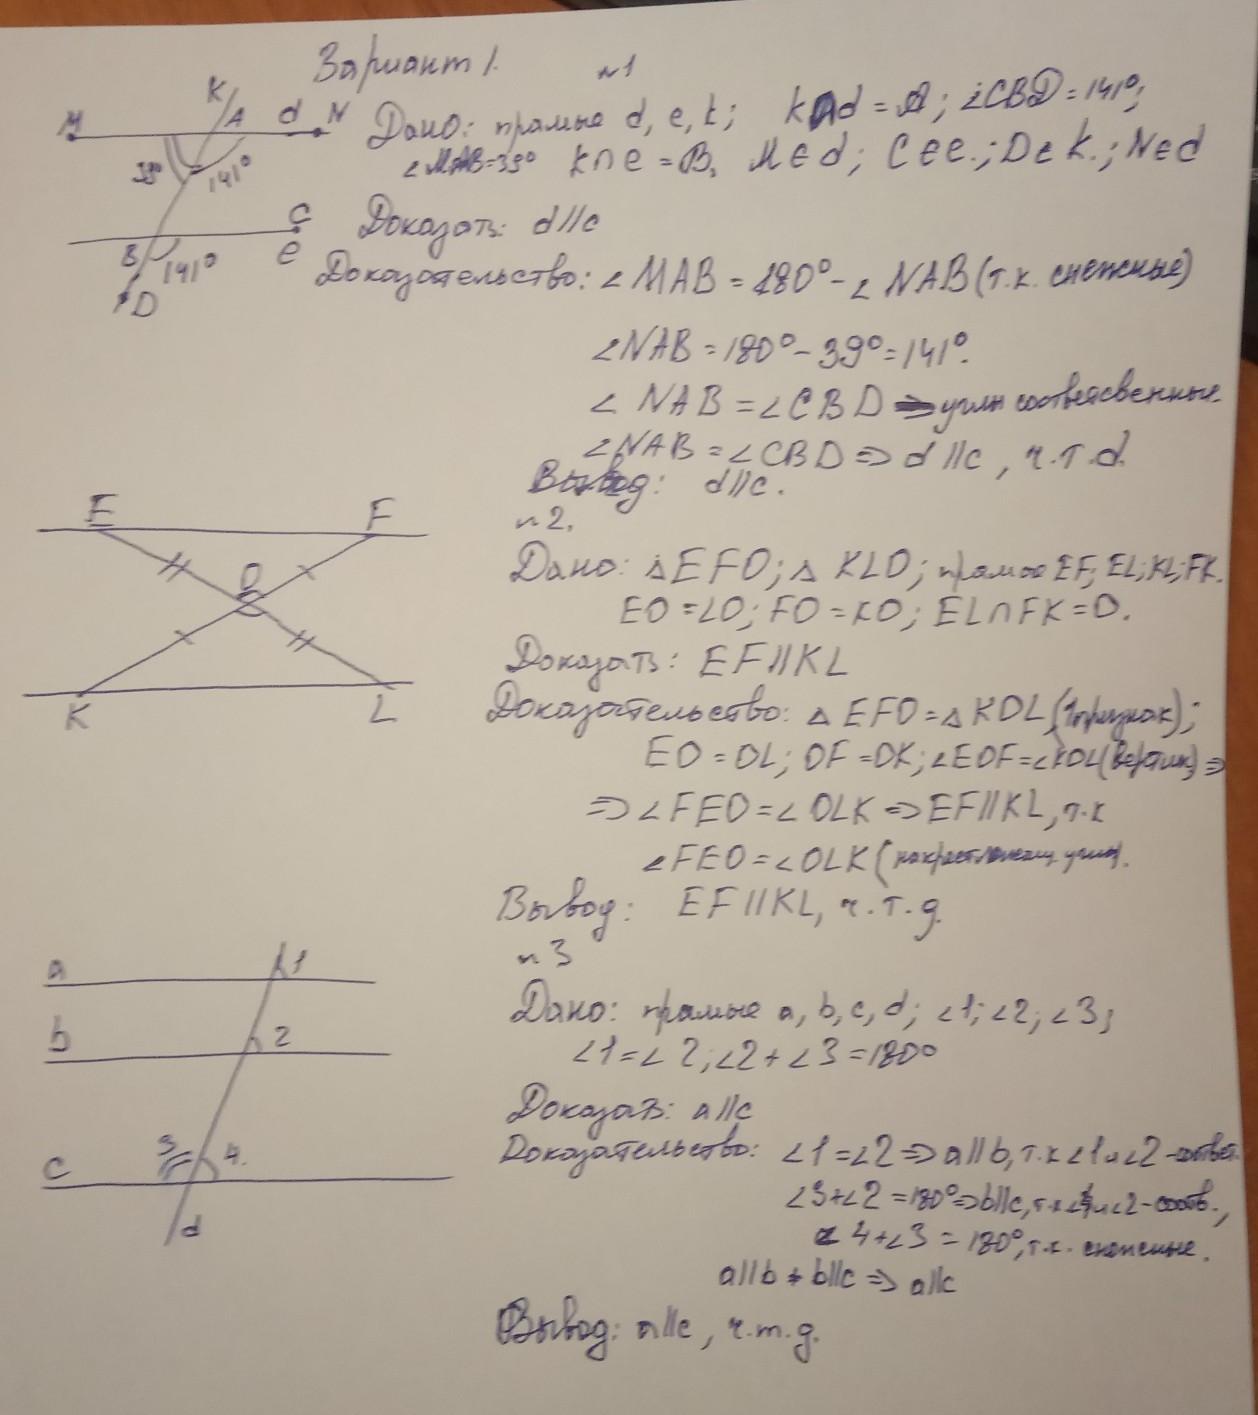 Вариант 1.
n1
K A d N
M
Дано: прямые d, e, k; k∩d = A; ∠CBD = 141°;
39° 141°
∠MAB=39° k∩e = B, M∈d; C∈e.; D∈k.; N∈d
C
Доказать: d//c
B 141° e
D
Доказательство: ∠MAB = 180° - ∠NAB (т.к. смежные)
∠NAB = 180° - 39° = 141°.
∠NAB = ∠CBD углы соответсвенные.
∠NAB = ∠CBD => d//c, ч.т.д.
Вывод: d//c.
n2.
E F
O
Дано: △EFO; △KLO; прямое EF; EL; KL; FK.
EO = LO; FO = KO; EL∩FK = O.
Доказать: EF//KL
K L
Доказательство: △EFO = △KOL (1признак);
EO = OL; OF = OK; ∠EOF = ∠KOL (вертик) =>
=> ∠FEO = ∠OLK => EF//KL, т.к
∠FEO = ∠OLK (накрестлежащ. углы).
Вывод: EF//KL, ч.т.д.
n3
a 1
Дано: прямые a, b, c, d; ∠1; ∠2; ∠3;
b 2
∠1 = ∠2; ∠2 + ∠3 = 180°
Доказать: a//c
c 3 4.
d
Доказательство: ∠1 = ∠2 => a//b, т.к ∠1 и ∠2 - соответ.
∠3 + ∠2 = 180° => b//c, т.к ∠4 и ∠2 - соотв.,
∠4 + ∠3 = 180°, т.к. смежные.
a//b + b//c => a//c
Вывод: a//c, ч.т.д.